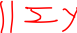 || Σy